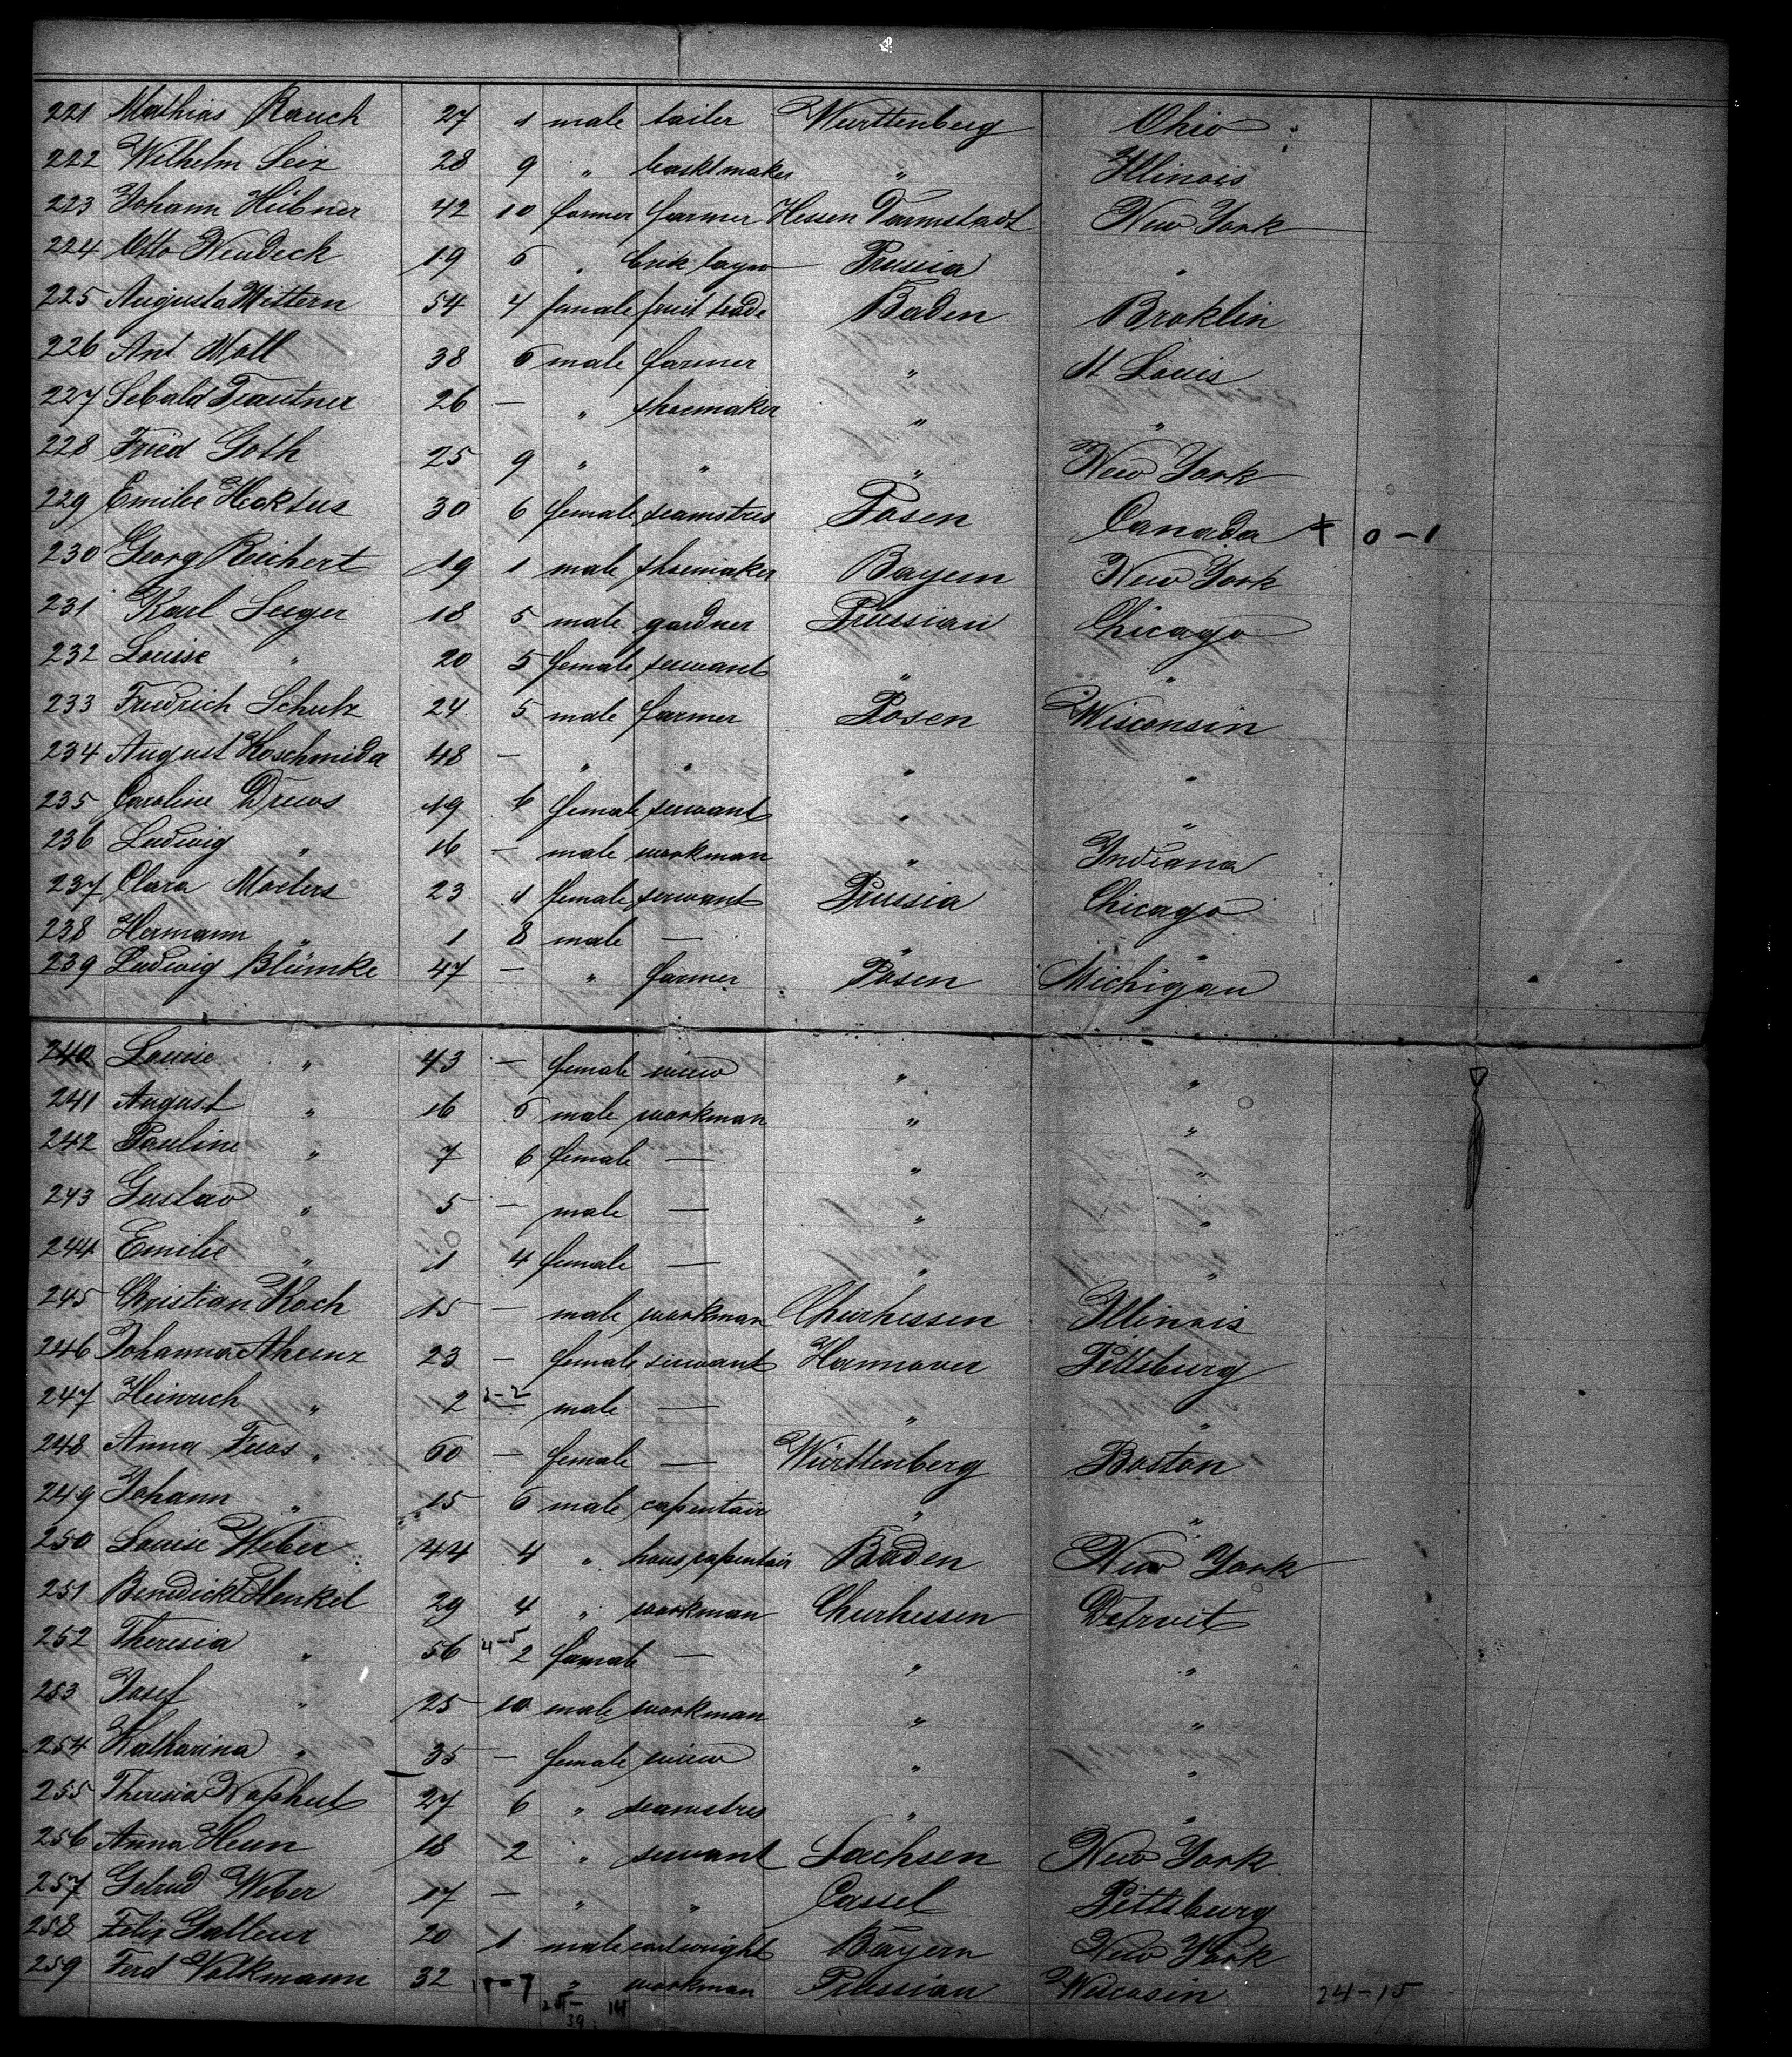 221 Mathias Rauch 27 1 male tailer Wurttenberg Ohio
222 Wilhelm Seiz 28 9 " basktmaker " Illinois
223 Johann Hübner 42 10 farmer farmer Hessen Darmstadt New York
224 Otto Neudeck 19 6 " Brik layer Prussia "
225 Augusta Wittern 54 4 female fruit trade Baden Broklin
226 Ant Moll 38 6 male farmer " St Louis
227 Sebald Trautner 26 — " shoemaker " "
228 Fried Goth 25 9 " " " New York
229 Emilie Hecktus 30 6 female seamstres Posen Canada + 0-1
230 Georg Reichert 19 1 male shoemaker Bayern New York
231 Karl Seeger 18 5 male gardner Prussian Chicago
232 Louise " 20 5 female servant " "
233 Friedrich Schulz 24 5 male farmer Posen Wisconsin
234 August Koschmider 48 — " " " "
235 Caroline Drews 19 6 female servant " "
236 Ludwig " 16 — male workman " Indiana
237 Clara Moelers 23 1 female servant Prussia Chicago
238 Hermann " 1 8 male — " "
239 Ludwig Blümke 47 — " farmer Posen Michigan
240 Louise " 43 — female " "
241 August " 16 6 male workman " "
242 Pauline " 7 6 female — " "
243 Gustav " 5 — male — " "
244 Emilie " 1 4 female — " "
245 Christian Koch 15 — male workman Churhessen Illinois
246 Johanna Ahrenz 23 — female servant Hannover Pittsburg
247 Heinrich " 2 2-2 — male — " "
248 Anna Fuos " 60 — female — Württenberg Boston
249 Johann " 15 6 male capentair " "
250 Louise Weber 44 4 " haus capentair Baden New York
251 Benedickt Henkel 29 4 " workman Churhessen Detroit
252 Theresia " 56 4-5 2 famale — " "
253 Josef " 25 10 male workman " "
254 Katharina " 35 — female " "
255 Theresia 27 6 " seamstres " "
256 Anna Heun 18 2 " servant Sachsen New York
257 Getrud Weber 17 — " " Cassel Pittsburg
258 Felix Galleur 20 1 male cartwright Bayern New York
259 Ferd Volkmann 32 " workman Prussian Wiscosin 24-15
39